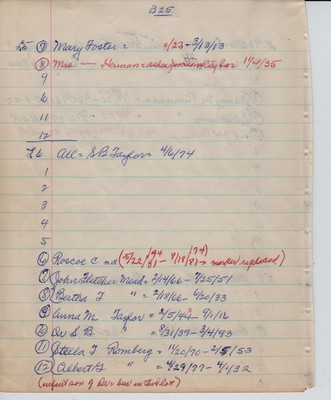 B25
L5 7 Mary Foster = 9/23 - 3/13/13
8 Mrs — Herman = ashes from City Bar 11/2/35
9
10
11
12
L6 All = S B Taylor = 4/6/74
1
2
3
4
5
6 Roscoe C = d (5/22/94 81 - 9/18/83 /94) = marker replaced)
7 John Fletcher Mead = 2/14/66 - 7/25/51
8 Bertha T " = 2/18/66 - 6/20/33
9 Anna M Taylor = 2/5/44 - 9/1/16
10 Dr S B " = 8/31/39 - 3/4/93
11 Stella T Romberg = 11/20/70 - 2/5/53
12 Albert G " = 4/29/77 - 4/1/32
(infant son of Dr = bur in this lot)